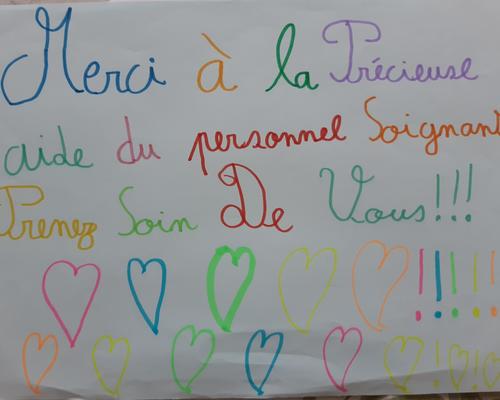 Merci à la Précieuse
aide du personnel Soignant
Prenez Soin De Vous!!!
!!!!!
!!!